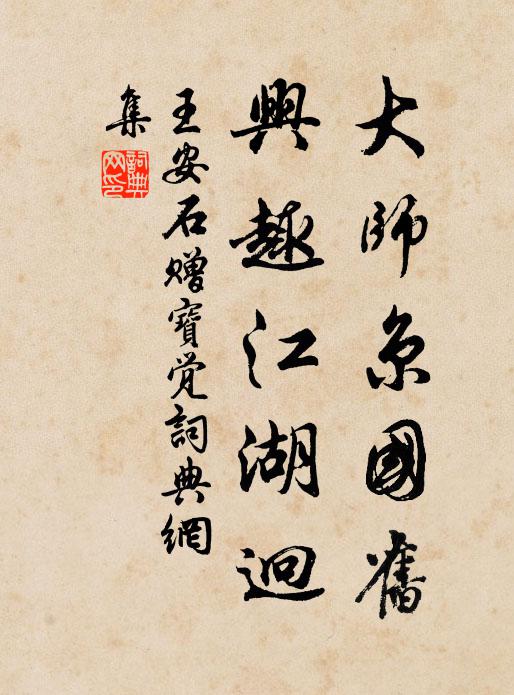 大師京國舊
興趣江湖迥
王安石贈寶覺詞典網
集
詞典網印